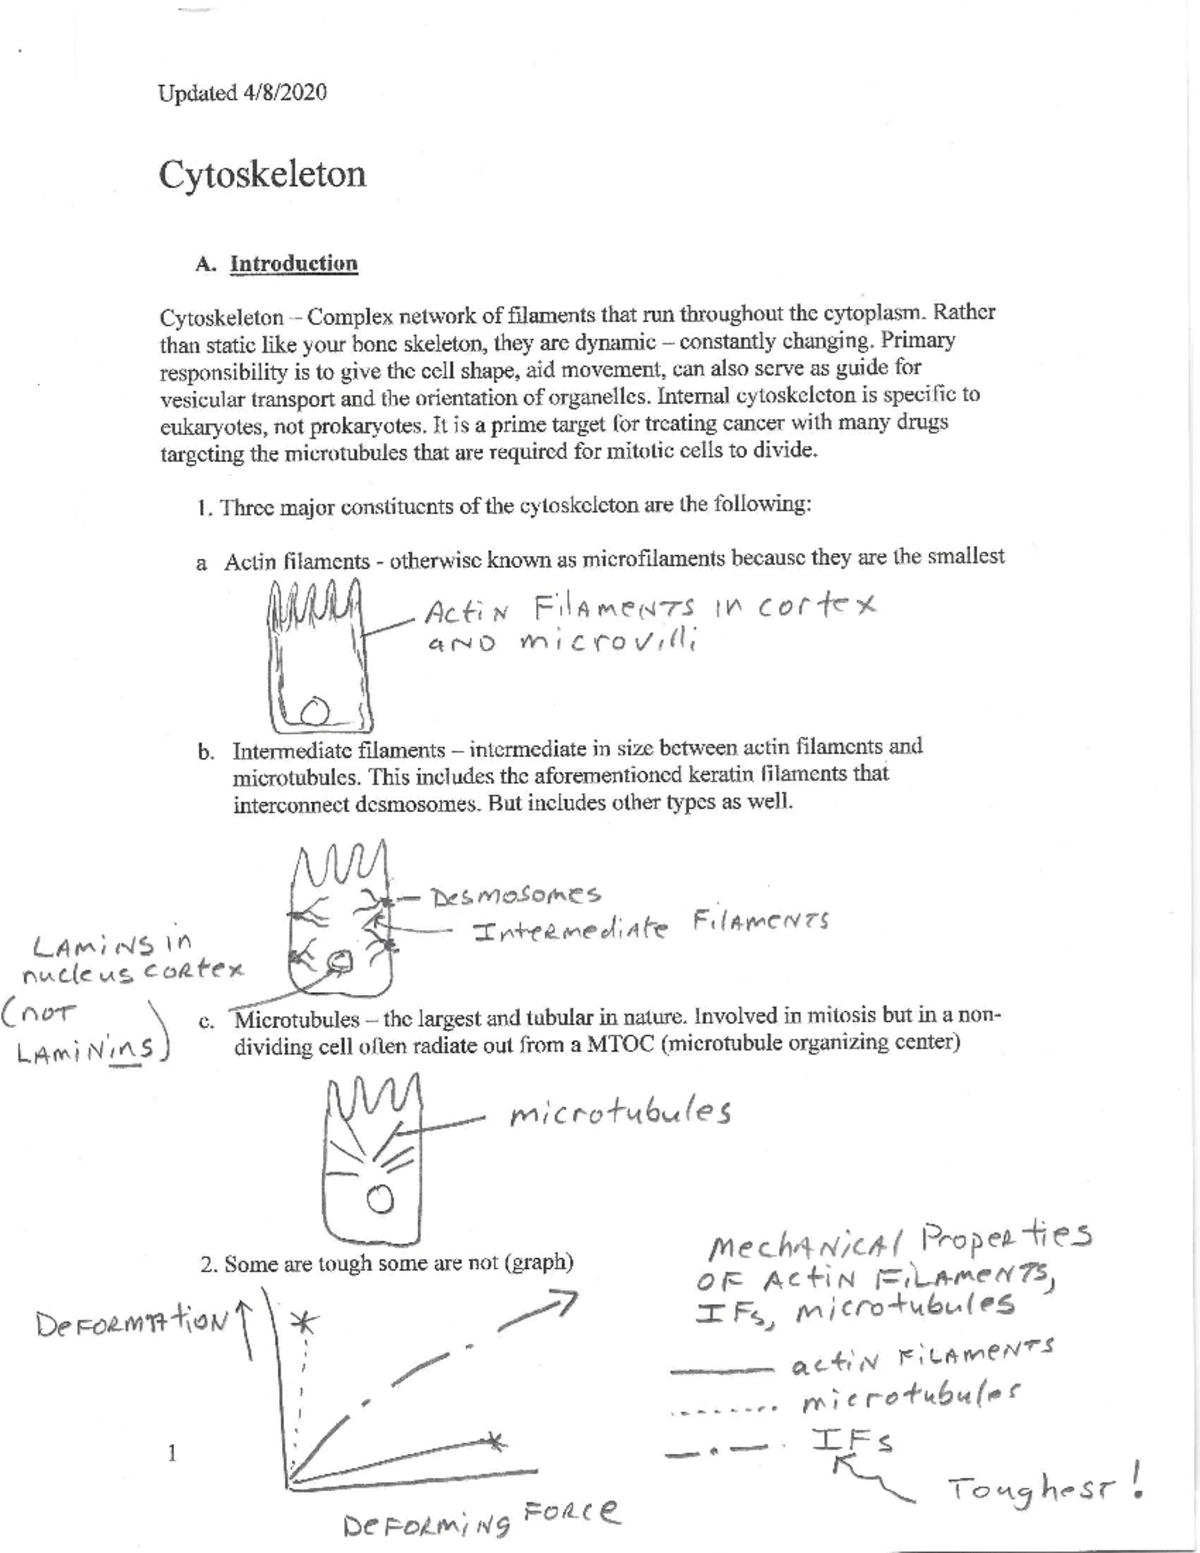 Updated 4/8/2020
Cytoskeleton
A. Introduction
Cytoskeleton – Complex network of filaments that run throughout the cytoplasm. Rather
than static like your bone skeleton, they are dynamic – constantly changing. Primary
responsibility is to give the cell shape, aid movement, can also serve as guide for
vesicular transport and the orientation of organelles. Internal cytoskeleton is specific to
eukaryotes, not prokaryotes. It is a prime target for treating cancer with many drugs
targeting the microtubules that are required for mitotic cells to divide.
1. Three major constituents of the cytoskeleton are the following:
a Actin filaments - otherwise known as microfilaments because they are the smallest
Actin Filaments in cortex
and microvilli
b. Intermediate filaments – intermediate in size between actin filaments and
microtubules. This includes the aforementioned keratin filaments that
interconnect desmosomes. But includes other types as well.
Desmosomes
Intermediate Filaments
Lamins in
nucleus cortex
(not
Laminins)
c. Microtubules – the largest and tubular in nature. Involved in mitosis but in a non-
dividing cell often radiate out from a MTOC (microtubule organizing center)
microtubules
2. Some are tough some are not (graph)
Mechanical Properties
of Actin Filaments,
IFs, microtubules
Deformation
actin Filaments
microtubules
IFs
Toughest!
Deforming Force
1